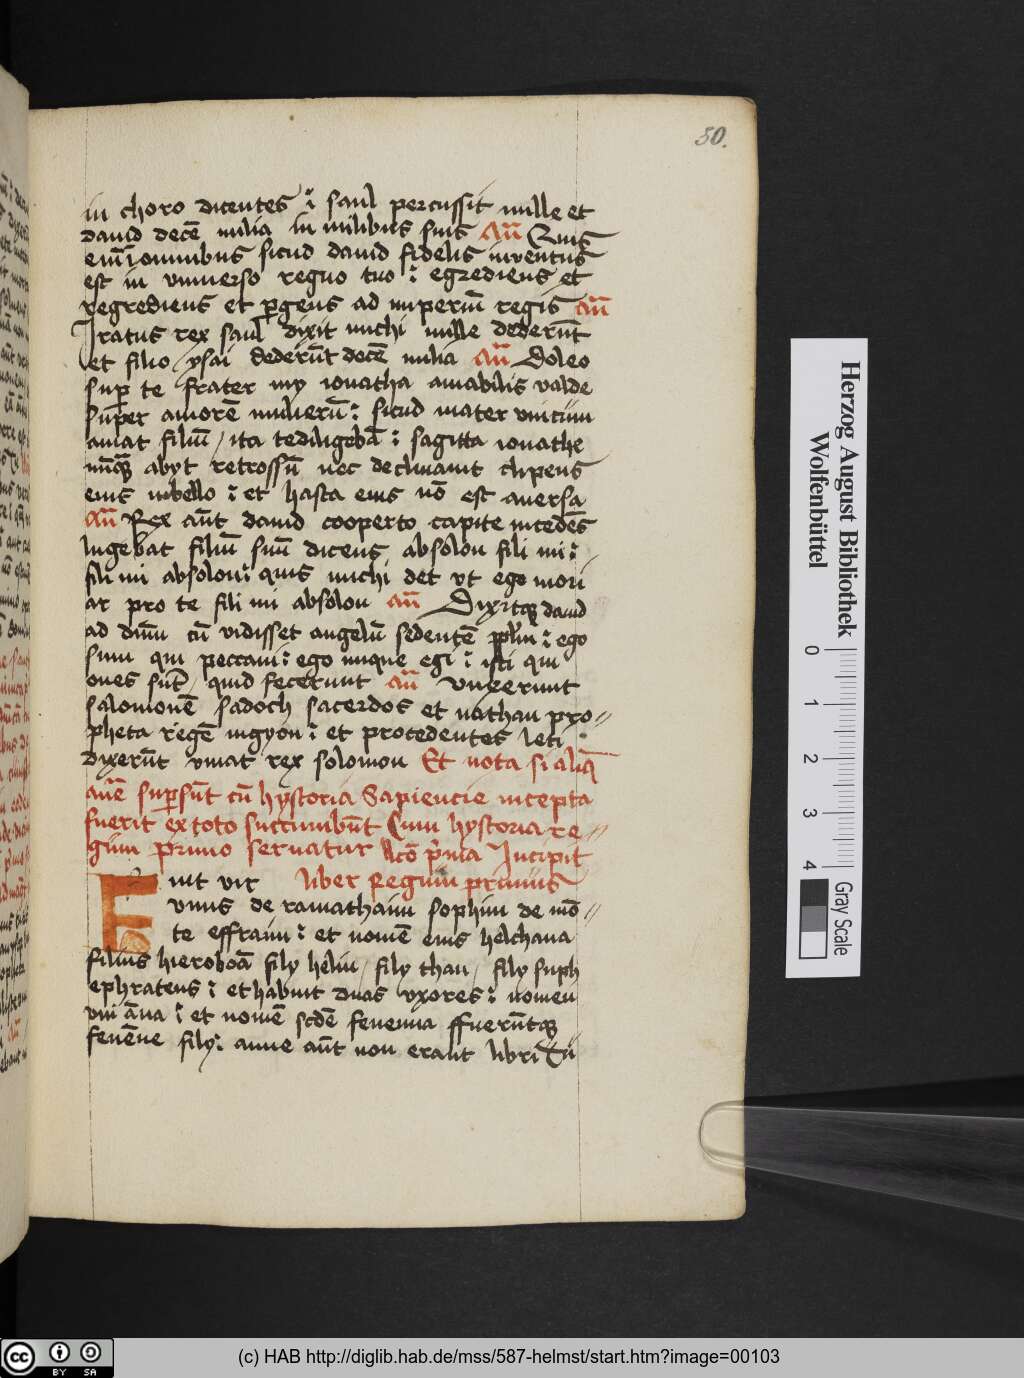 50.
in choro dicentes : saul percussit mille et
dauid decē milia in milibus suis Añ Quis
eim̄ iomnibus sicud dauid fidelis inventus
est in vniuerso regno tuo : egrediens et
regrediens et pergens ad imperiū regis añ
Iratus rex saul dixit michi mille dederūt
et filio ysai dederūt decē milia Añ Doleo
sup te frater my ionatha amabilis valde
super amorē mulierū : sicud mater vnicum
amat filiū / ita tediligebā : sagitta ionathe
nūqȝ abyt retrossū nec declinauit clipeus
eius inbello : et hasta eius nō est auersa
Añ Rex aūt dauid cooperto capite incedēs
lugebat filiū suū dicens absolon fili mi :
fili mi absolon : quis michi det vt ego mori
ar pro te fili mi absolon añ Dixitqȝ dauid
ad dnm̄ cū vidisset angelū sedentē pplm̄ : ego
sum qui peccaui : ego inique egi : isti qui
oues sūt / quid fecerunt añ vnxerunt
salomonē sadoch sacerdos et nathan pro=
pheta regē ingyon : et procedentes leti
dixerūt viuat rex solomon Et nota si aliq̄
añe supsūt cū hystoria Sapiencie incepta
fuerit ex toto succumbūt Cum hystoria re=
gum primo seruatur lcō p̄ma Incipit
Fuit vir liber Regum primus
vnus de ramathaim sophim de mō=
te effraim : et nomē eius helchana
filius hieroboā fily heliu / fily thau / fily suph
ephrateus : et habuit duas vxores : nomen
vni āna : et nomē scdē fenenna ffueruntqȝ
fenēne fily : anne aūt non erant libri
Herzog August Bibliothek
Wolfenbüttel
0 1 2 3 4
Gray Scale
cc BY SA
(c) HAB http://diglib.hab.de/mss/587-helmst/start.htm?image=00103